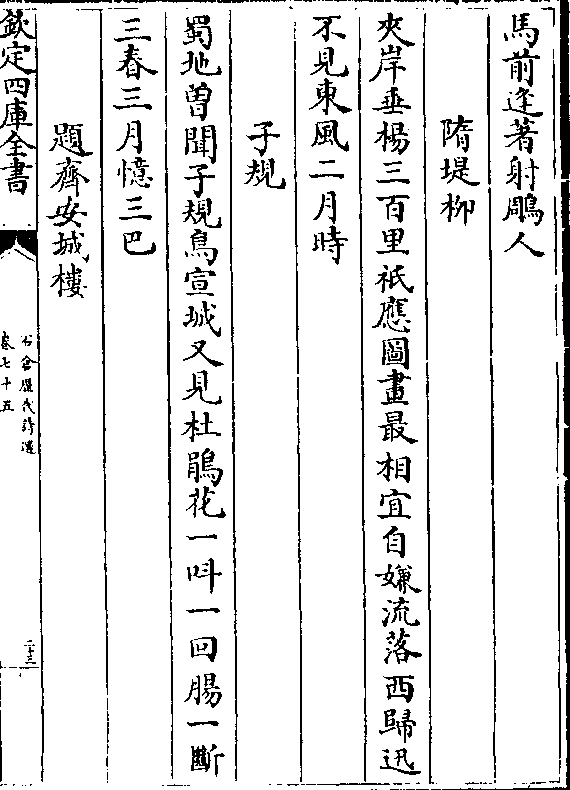 馬前逢著射鵰人
隋堤柳
夾岸垂楊三百里祇應圖畫最相宜自嫌流落西歸迅
不見東風二月時
子規
蜀地曾聞子規鳥宣城又見杜鵑花一呌一回腸一斷
三春三月憶三巴
題齊安城樓
欽定四庫全書
石倉歴代詩選
卷七十五
二十三